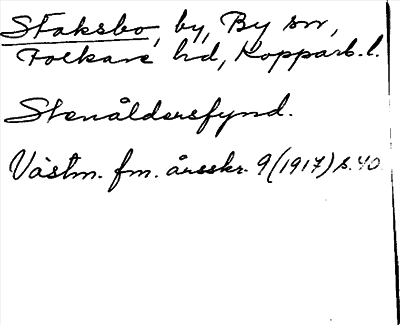 Staksbo, by, By sn,
Folkare hd, Kopparb. l.
Stenåldersfynd.
Västm. fm. årsskr. 9 (1917) s. 40